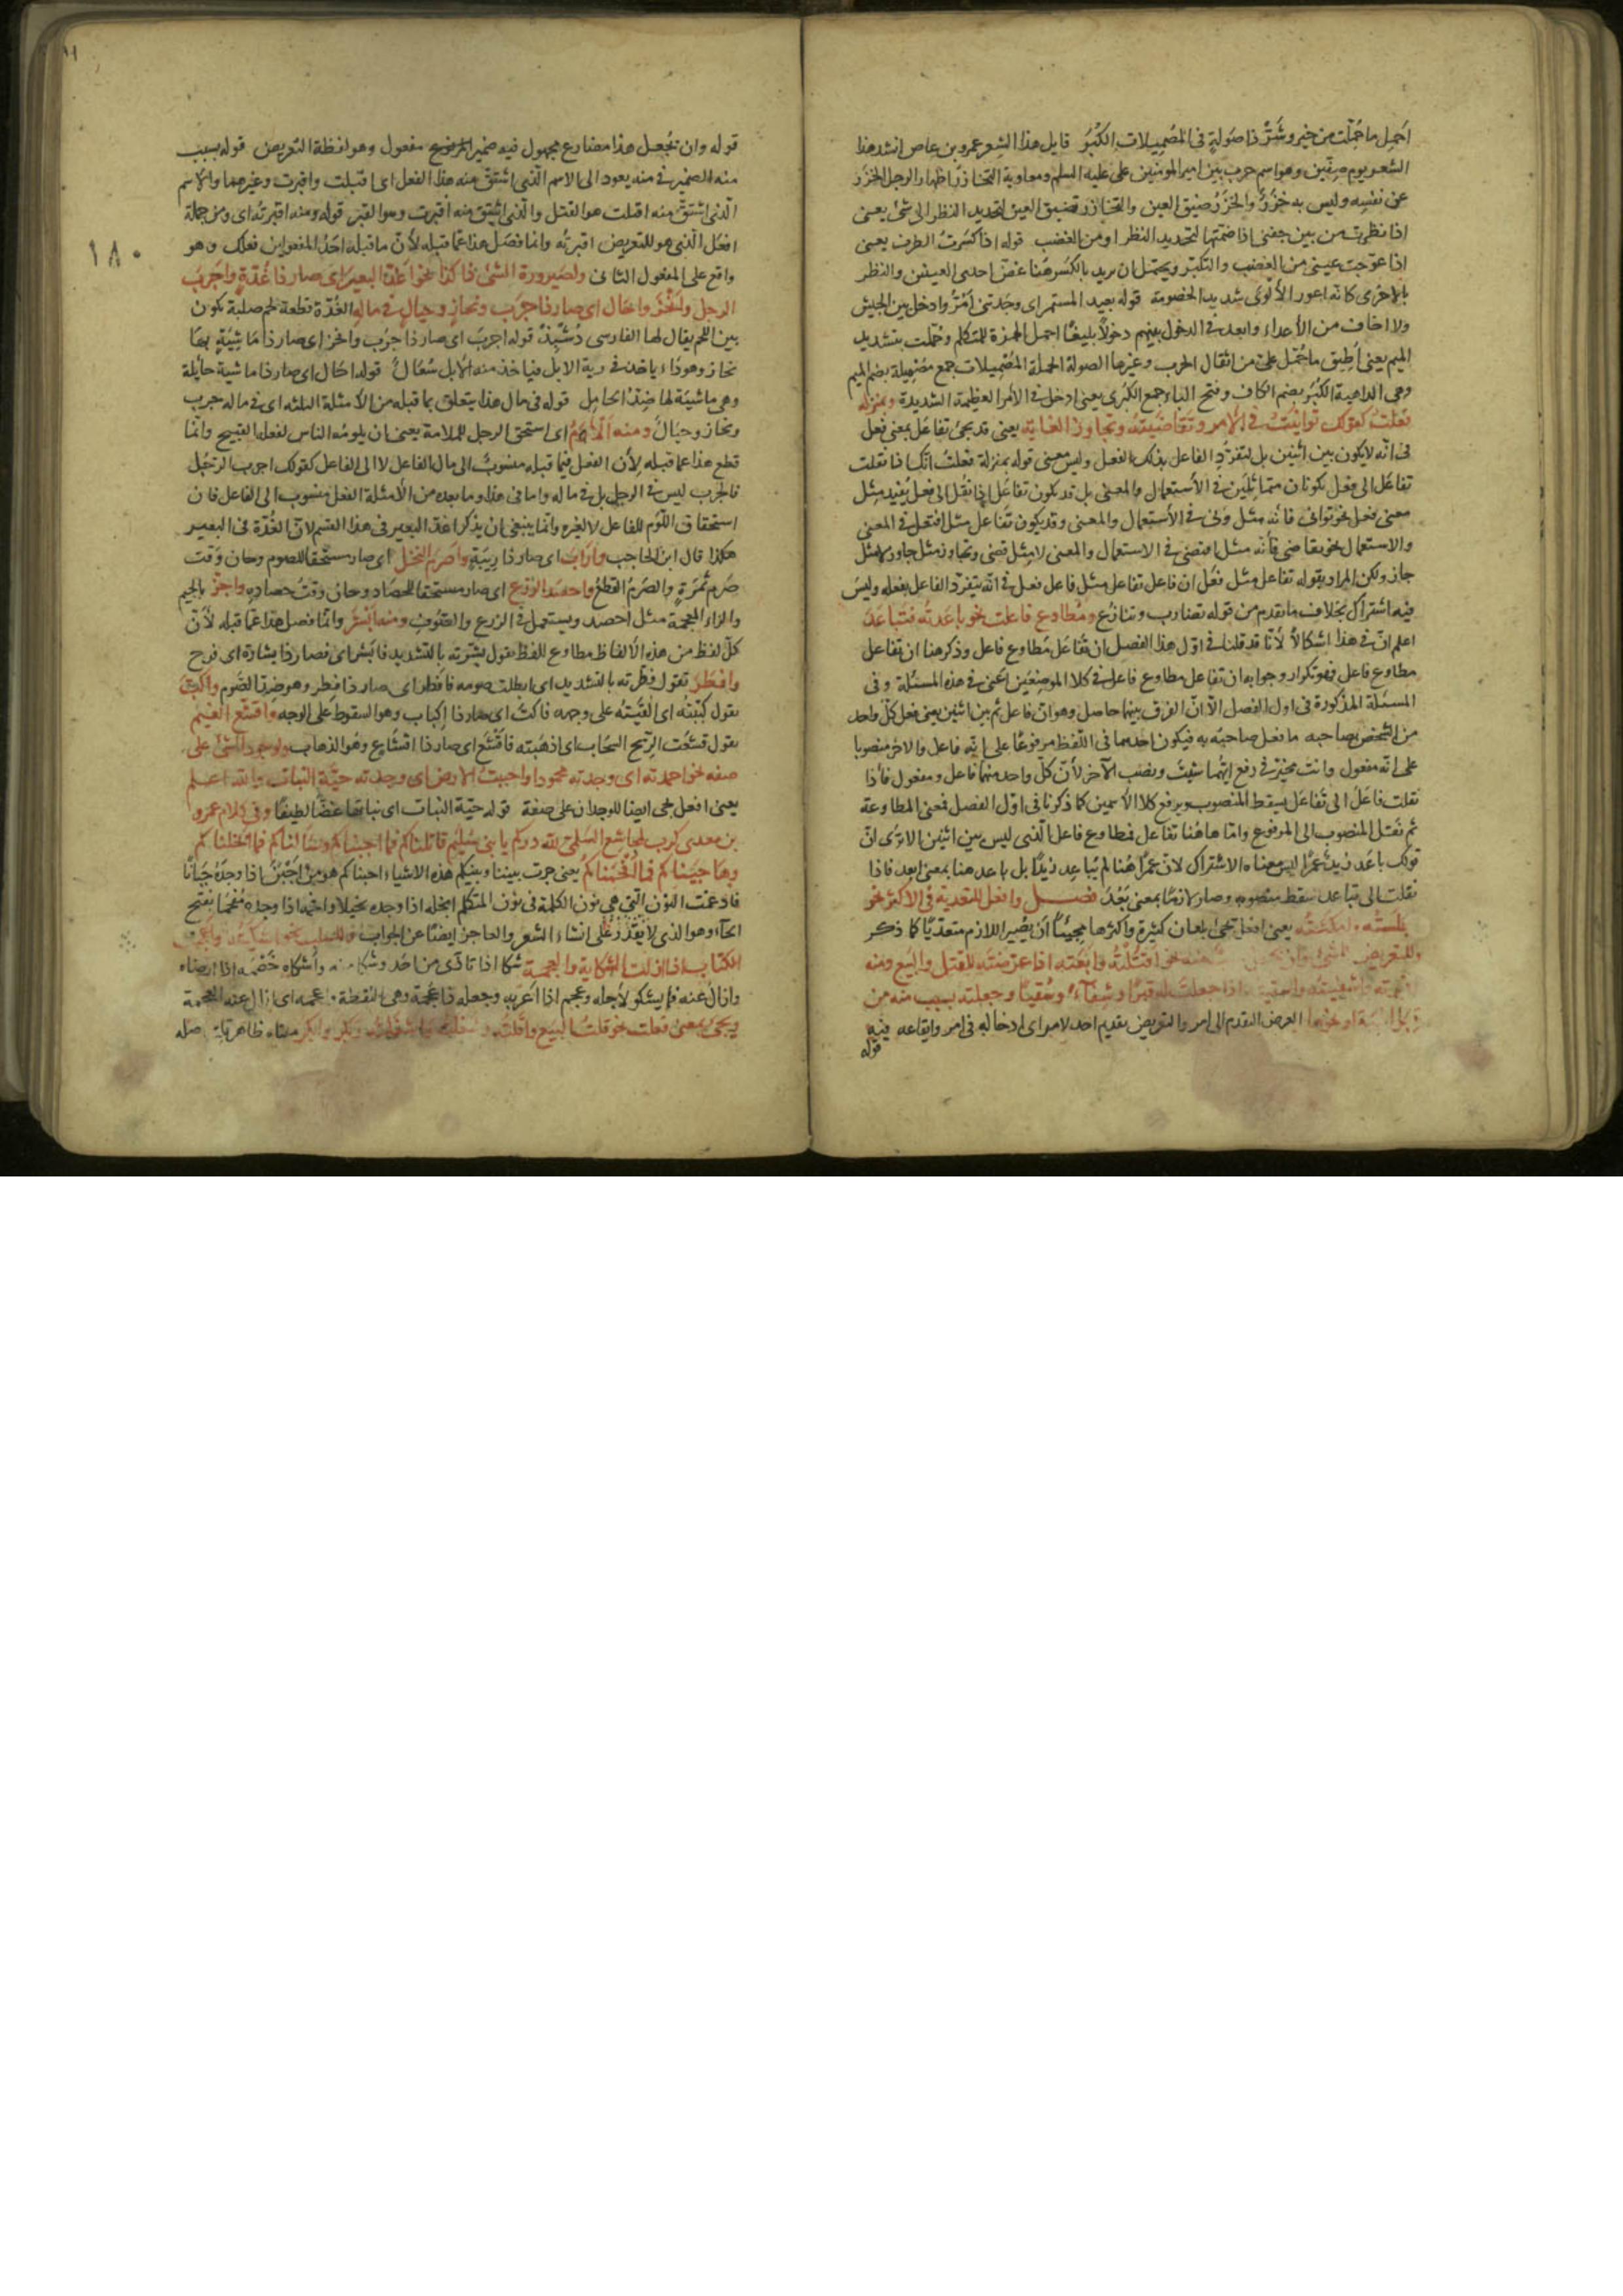 احمل ما حُمّلت من خير وشرّ ذا صَولةٍ فى المُصْمَئِلات الكُبَر قايل هذا الشعر عمرو بن عاص انشد هذا
الشعر يوم صِفّين وهو اسم حرب بين امير المومنين على عليه السلم ومعاوية التخازر اظهار الرجل الخزر
عن نفسه وليس به خزر والخزر ضيق العين والتخازر تضييق العين لتحديد النظر الى شئ يعنى
اذا نظرت من بين جفنى اذا ضممتها لتحديد النظر او من الغضب قوله اذا كسرت الطرف يعنى
اذا عوّجت عينى من الغضب والتكبّر ويحتمل ان يريد بالكسر هنا غضّ احدى العينين والنظر
بالاخرى كانّه اعور الألوى شديد الخصومة قوله بعيد المستمر اى وجدتنى أمُرّ وادخل بين الجيش
ولا اخاف من الأعداء وابعد فى الدخول بينهم دخولاً بليغًا احمل الهمزة للمتكلم وحُمّلت بتشديد
الميم يعنى أُطيق ما حُمّل علىّ من اثقال الحرب وغيرها الصولة الحملة المُصْمَئِلات جمع مُصْمَئِلة بضم الميم
وهى الداهية الكُبَر بضم الكاف وفتح الباء جمع الكبرى يعنى ادخل فى الأمر العظيمة الشديدة وبمنزلة
فعلت كقولك توانيتُ فى الأمر وتقاضيته وتجاوز الغاية يعنى قد يجئ تفاعل بمعنى فعل
فى انّه لا يكون بين اثنين بل لتفرّد الفاعل بذلك الفعل وليس معنى قوله بمنزلة فعلت انّك اذا نقلت
تفاعل الى فعل يكونان متماثلَين فى الأستعمال والمعنى بل قد يكون تفاعل اذا نقل الى فعل يُفيد مثل
معنى فعل نحو توانى فانّه مثل ونى فى الأستعمال والمعنى وقد يكون تفاعل مثل افتعل فى المعنى
والاستعمال نحو تقاضى فأنّه مثل اقتضى فى الاستعمال والمعنى لا مثل قضى وتجاوز مثل جاوز لا مثل
جاز ولكن المراد بقوله تفاعل مثل فعل ان فاعل تفاعل مثل فاعل فعل فى انّه يتفرّد الفاعل بفعله وليس
فيه اشتراك بخلاف ما تقدم من قوله تضارب وتنازع ومُطاوع فاعلت نحو باعدته فتباعد
اعلم انّ فى هذا اشكالاً لأنّا قد قلنا فى اوّل هذا الفصل ان تفاعل مطاوع فاعل وذكر هنا ان تفاعل
مطاوع فاعل فهو تكرار وجوابه ان تفاعل مطاوع فاعل فى كلا الموضعين اعنى فى هذه المسئلة وفى
المسئلة المذكورة فى اول الفصل الاّ انّ الفرق بينهما حاصل وهو ان فاعل ثم بين اثنين يعنى فعل كلّ واحد
من الشخص بصاحبه ما فعل صاحبه به فيكون احدهما فى اللّفظ مرفوعًا على انّه فاعل والاخر منصوبا
على انّه مفعول وانت مخيّر فى رفع ايّهما شئتَ ونصب الآخر لأنّ كلّ واحد منهما فاعل ومفعول فاذا
نقلت فاعل الى تفاعل يسقط المنصوب ويرفع كلا الأسمين كما ذكرنا فى اوّل الفصل فمعنى المطاوعة
ثم نقل المنصوب الى المرفوع وامّا هاهُنا تفاعل مطاوع فاعل الّذى ليس بين اثنين الا ترى انّ
قولك باعد زيدٌ عمرًا ليس معناه الاشتراك لانّ عمرًا هُنا لم يُباعِد زيدًا بل باعد هنا بمعنى ابعد فاذا
نقلت الى تباعد سقط منصوبه وصار لازمًا بمعنى بَعُدَ فصل وافعل للتعدية فى الاكثر نحو
اجلسته وامكثته يعنى افعل يجئ بمعان كثيرة وأكثرها مجيئًا أن يصيّر اللازم متعدّيًا كما ذكر
وللتعريض للشئ وان يجعل بسبب منه نحو اقتلته وابعته اذا عرّضته للقتل والبيع ومنه
اقبرته واشفيته واسقيته اذا جعلت له قبرًا وشفاءً وسُقيًا وجعلته بسبب منه من
قبل الهبة او نحوها العرض التقدم الى امر والتعريض تقديم احد لامر اى ادخاله فى امر وايقاعه فيه
قوله
قوله وان يُجعل هذا مضارع مجهول فيه ضمير المرفوع مفعول وهو لفظة التعريض قوله بسبب
منه الضمير فى منه يعود الى الاسم الّذى اشتقّ منه هذا الفعل اى اقتلت واقبرت وغيرهما والاسم
الّذى اشتقّ منه اقتلت هو القتل والّذى اشتقّ منه اقبرت وهو القبر قوله ومنه اقبرته اى ومن جملة
افعل الّذى هو للتعريض اقبرته وانما فصل هذا عمّا قبله لأنّ ما قبله احد المفعولين فعلك وهو
واقع على المفعول الثانى ولصيرورة الشئ ذا كذا نحو اغدّ البعير اى صار ذا غُدّةٍ واجرب
الرجل وانحز واحال اى صار ذا جرب ونحاز وحيال فى ماله الغُدّة قطعة لحم صلبة تكون
بين اللحم يقال لها الفارسى دُشْبِذ قوله اجرب اى صار ذا جرب وانحز اى صار ذا ماشيةٍ بها
نحاز وهو داء ياخذ فى رية الابل فياخذ منه الأبل سُعال قوله احال اى صار ذا ماشية حايلة
وهى ماشية لها ضِدّ الحامل قوله فى مال هذا يتعلق بما قبله من الأمثلة الثلثة اى فى ماله جرب
ونحاز وحيال ومنه ألامَ اى استحق الرجل للملامة يعنى ان يلومه الناس لفعله القبيح وانّما
قطع هذا عما قبله لأن الفعل فيما قبله منسوبٌ الى مال الفاعل لا الى الفاعل كقولك اجرب الرجُل
فالجرب ليس فى الرجل بل فى ماله واما فى هذا وما بعده من الأمثلة الفعل منسوب الى الفاعل فان
استحقاق اللوم للفاعل لا لغيره وانّما ينبغى ان يذكر اغدّ البعير فى هذا القسم لانّ الغُدّة فى البعير
هكذا قال ابن الحاجب وارابَ اى صار ذا ريبةٍ واصرم النخل اى صار مستحقّا للصرم وحان وَقت
صَرم ثمرةٍ والصرم القطع واحصد الزرع اى صار مستحقّا للحصاد وحان وقت حصاده واجزّ بالجيم
والزاء المعجمة مثل احصد ويستعمل فى الزرع والصوف ومنه ابْشَرَ وانّما فصل هذا عمّا قبله لأنّ
كلّ لفظ من هذه الألفاظ مطاوع للفظ يقول بشّرته بالتشديد فابشر اى فصار ذا بشارة اى فرح
وافطر تقول فطّرته بالتشديد اى ابطلت صومه فافطر اى صار ذا فطر وهو ضدّ الصوم واكبّ
يقول كببته اى القيته على وجهه فاكبّ اى صار ذا إكباب وهو السقوط على الوجه واقشع الغيم
يقول قشعت الرّيح السحاب اى اذهبته فاقشع اى صار ذا اقشاع وهو الذهاب ولوجود الشئ على
صفة نحو احمدته اى وجدته محمودا واحييت الأرض اى وجدته حيّة النبات والله اعلم
يعنى افعل يجى ايضا للوجدان على صفة قوله حيّة النبات اى نباتها غضّا لطيفًا وفى كلام عمرو
بن معدى كرب لمجاشع السلمى لله دركم يا بنى سُليم قاتلناكم فما اجبنّاكم وسألناكم فما ابخلناكم
وهاجيناكم فما افحمناكم يعنى جرت بيننا وبينكم هذه الاشياء اجبنّاكم هو من اجْبَنَ اذا وجده جَبانًا
فادغمت النون التى هى نون الكلمة فى نون المتكلم ابخله اذا وجده بخيلا وافحمه اذا وجده مُفحَما بفتح
الحاء وهو الذى لا يقدر على انشاء الشعر والعاجز ايضًا عن الجواب وللسلب نحو اشكيته واعجمت
الكتاب اذا ازلت الشكاية والعجمة شكا اذا تاذّى من احد وشكا منه وأشكاه خصمه اذا ارضاه
وازال عنه ما يشكو لأجله وعجم اذا اعربه وجعله ذا عجمة وهى النقطة واعجمه اى ازال عنه العجمة
ويجئ بمعنى فعلت نحو قلت البيع واقلته وشغلته واشغلته وبكر وابكر معناه ظاهر اصله
١٨٠